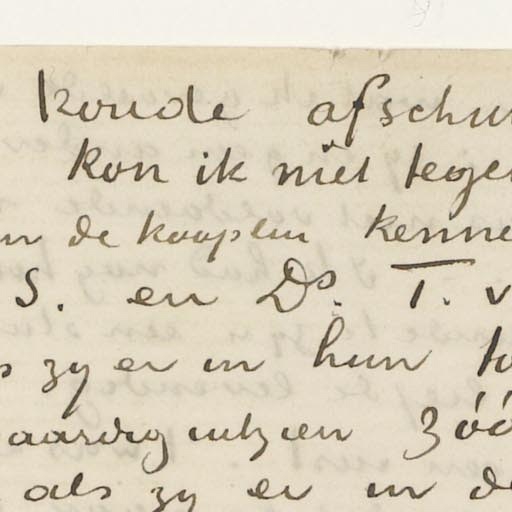 koude afschu
kon ik niet tegen
de kooplui kenne
S. en Ds. T. v
zy er in hun
aardig uitzien zóó
als zy er in de